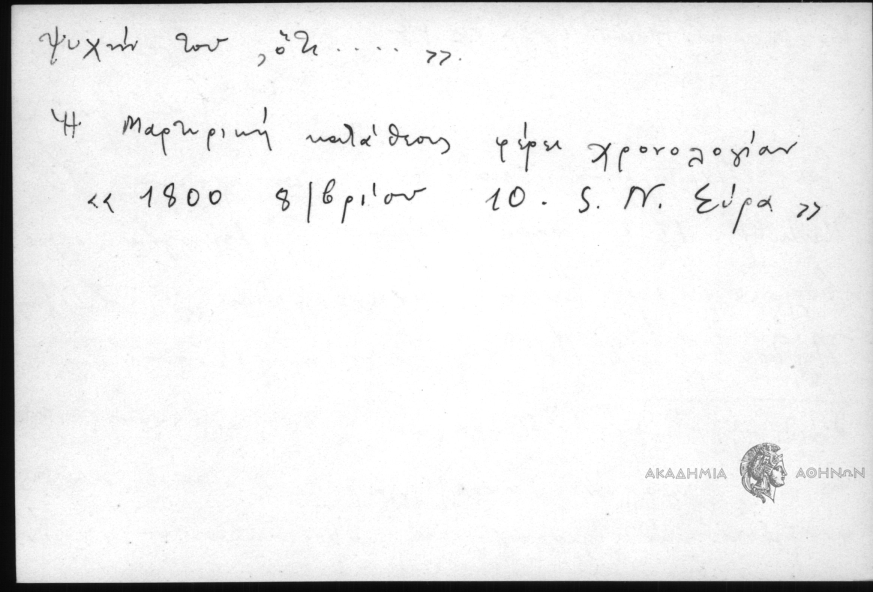 ψυχήν του , ὅτι ..... ».
Ἡ Μαρτυρική κατάθεσις φέρει χρονολογίαν
« 1800 8/βρίου 10. S. N. Σύρα »
ΑΚΑΔΗΜΙΑ ΑΘΗΝΩΝ